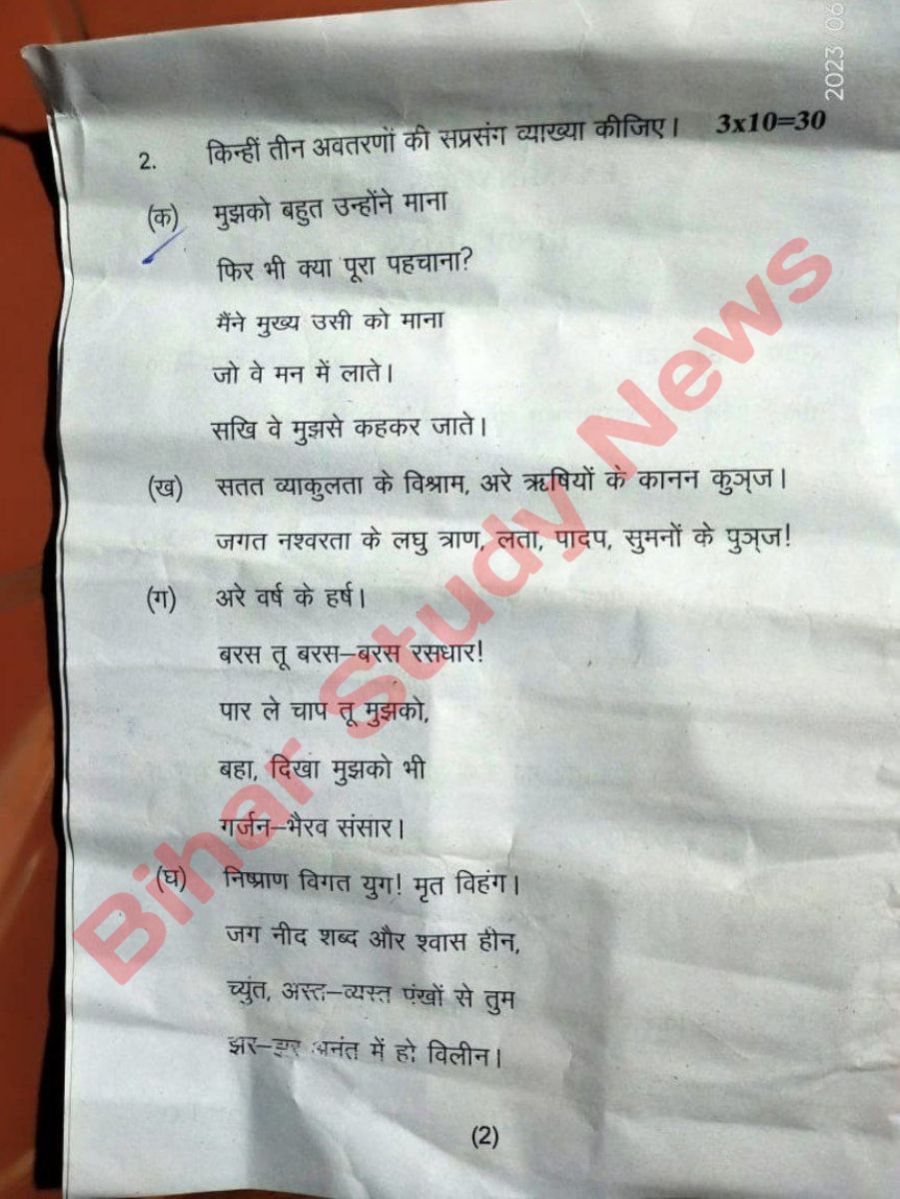 2023 06
2. किन्हीं तीन अवतरणों की सप्रसंग व्याख्या कीजिए। 3x10=30
(क) मुझको बहुत उन्होंने माना
फिर भी क्या पूरा पहचाना?
मैंने मुख्य उसी को माना
जो वे मन में लाते।
सखि वे मुझसे कहकर जाते।
(ख) सतत व्याकुलता के विश्राम, अरे ऋषियों के कानन कुञ्ज।
जगत नश्वरता के लघु त्राण, लता, पादप, सुमनों के पुञ्ज!
(ग) अरे वर्ष के हर्ष।
बरस तू बरस–बरस रसधार!
पार ले चाप तू मुझको,
बहा, दिखा मुझको भी
गर्जन–भैरव संसार।
(घ) निष्प्राण विगत युग! मृत विहंग।
जग नीद शब्द और श्वास हीन,
च्युंत, अस्त–व्यस्त पंखों से तुम
झर–झर अनंत में हो विलीन।
(2)
Bihar Study News